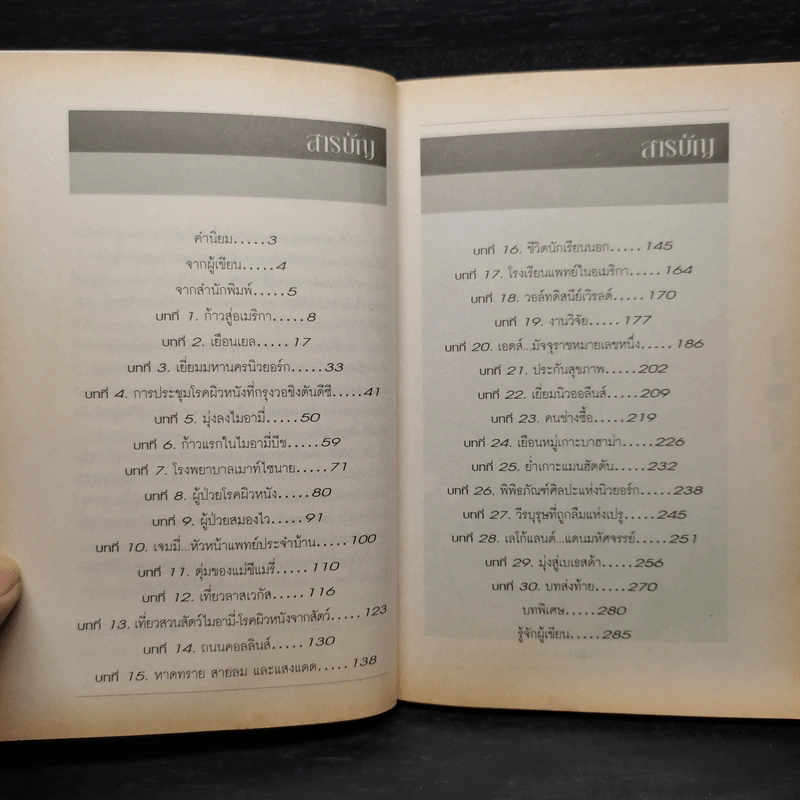 สารบัญ
คำนิยม.....3
จากผู้เขียน.....4
จากสำนักพิมพ์.....5
บทที่ 1. ก้าวสู่อเมริกา.....8
บทที่ 2. เยือนเยล.....17
บทที่ 3. เยี่ยมมหานครนิวยอร์ก.....33
บทที่ 4. การประชุมโรคผิวหนังที่กรุงวอชิงตันดีซี.....41
บทที่ 5. มุ่งลงไมอามี่.....50
บทที่ 6. ก้าวแรกในไมอามี่บีช.....59
บทที่ 7. โรงพยาบาลเมาท์ไซนาย.....71
บทที่ 8. ผู้ป่วยโรคผิวหนัง.....80
บทที่ 9. ผู้ป่วยสมองไว.....91
บทที่ 10. เจมมี่...หัวหน้าแพทย์ประจำบ้าน.....100
บทที่ 11. ตุ่มของแม่ชีแมรี่.....110
บทที่ 12. เที่ยวลาสเวกัส.....116
บทที่ 13. เที่ยวสวนสัตว์ไมอามี่-โรคผิวหนังจากสัตว์.....123
บทที่ 14. ถนนคอลลินส์.....130
บทที่ 15. หาดทราย สายลม และแสงแดด.....138
สารบัญ
บทที่ 16. ชีวิตนักเรียนนอก.....145
บทที่ 17. โรงเรียนแพทย์ในอเมริกา.....164
บทที่ 18. วอล์ทดิสนีย์เวิรลด์.....170
บทที่ 19. งานวิจัย.....177
บทที่ 20. เอดส์...มัจจุราชหมายเลขหนึ่ง.....186
บทที่ 21. ประกันสุขภาพ.....202
บทที่ 22. เยี่ยมนิวออลีนส์.....209
บทที่ 23. คนช่างซื้อ.....219
บทที่ 24. เยือนหมู่เกาะบาฮาม่า.....226
บทที่ 25. ย่ำเกาะแมนฮัตตัน.....232
บทที่ 26. พิพิธภัณฑ์ศิลปะแห่งนิวยอร์ก.....238
บทที่ 27. วีรบุรุษที่ถูกลืมแห่งเปรู.....245
บทที่ 28. เลโก้แลนด์...แดนมหัศจรรย์.....251
บทที่ 29. มุ่งสู่เบเธสด้า.....256
บทที่ 30. บทส่งท้าย.....270
บทพิเศษ.....280
รู้จักผู้เขียน.....285